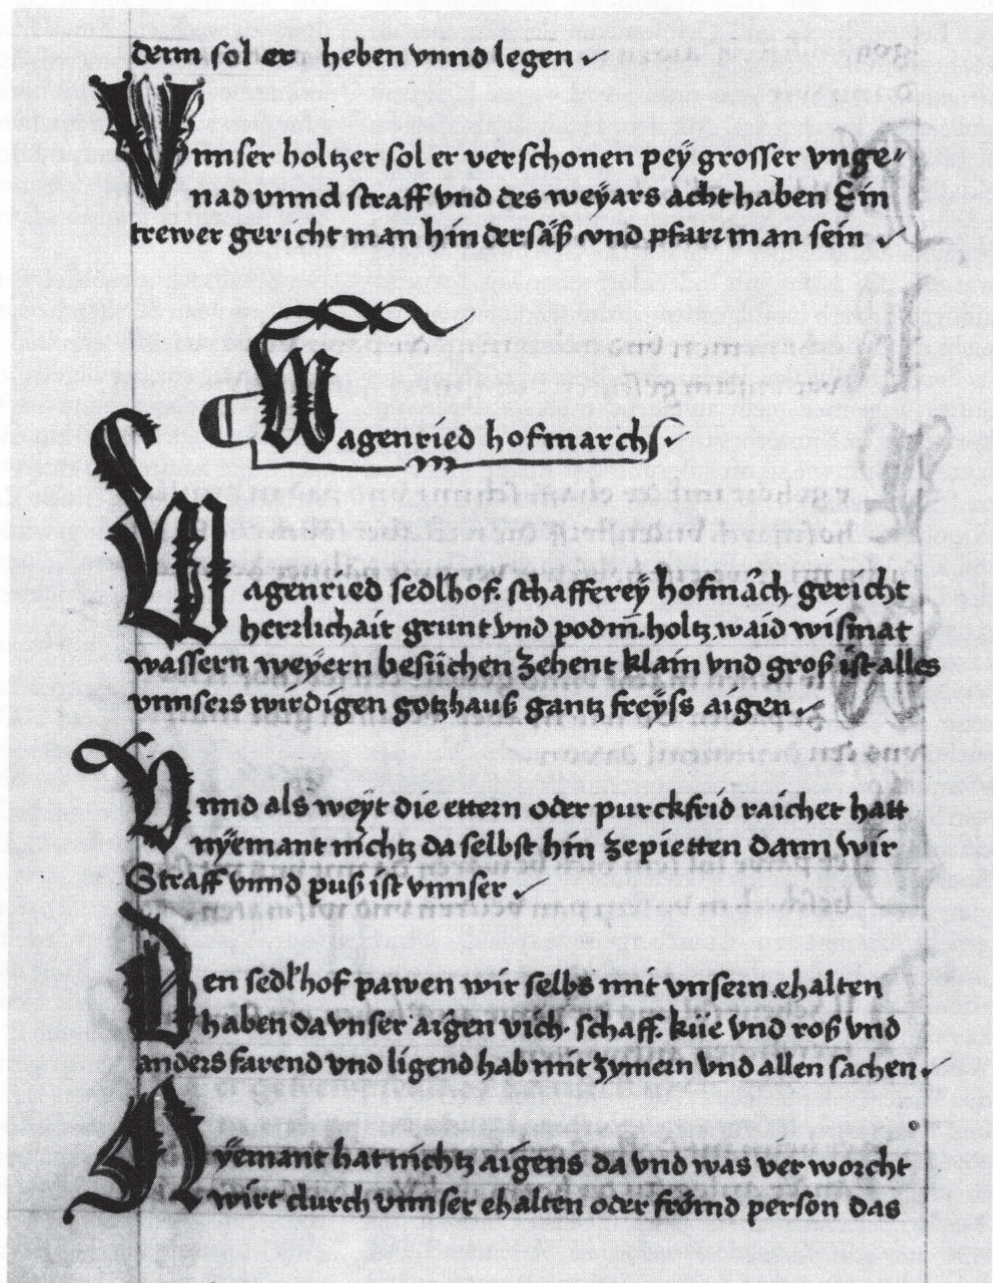 denn sol er heben vnnd legen
Vnnser holtzer sol er verschonen peÿ grosser vnge-
nad vnnd straff vnd des weÿars acht haben Ein
trewer gericht man hindersäß vnd pfarrman sein
Wagenried hofmarchs
Wagenried sedlhof. schaffereÿ hofmarch gericht
herrlichait grunt vnd podm̄. holtz waid wismat
wassern weÿern besüchen zehent klain vnd groß ist alles
vnnsers wirdigen gotzhauß gantz freÿss aigen
Vnnd als weÿt die ettern oder purckfrid raichet hatt
nÿemant nichtz da selbst hin zepietten dann wir
Straff vnnd puß ist vnnser
Den sedlhof pawen wir selbs mit vnsern ehalten
haben da vnser aigen vich. schaff. küe vnd roß vnd
anders farend vnd ligend hab mit zymern vnd allen sachen
Nÿemant hat nichtz aigens da vnd was ver worcht
wirt durch vnnser ehalten oder frömd person das